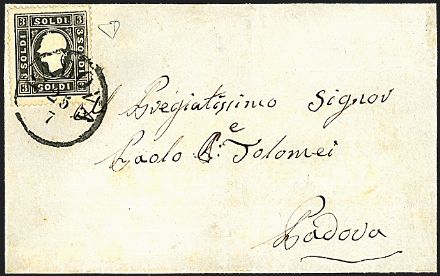 3 SOLDI 3
3 SOLDI
3 SOLDI
3 SOLDI 3
25
7
Al Pregiatissimo Signor
e
Paolo Tolomei
Padova